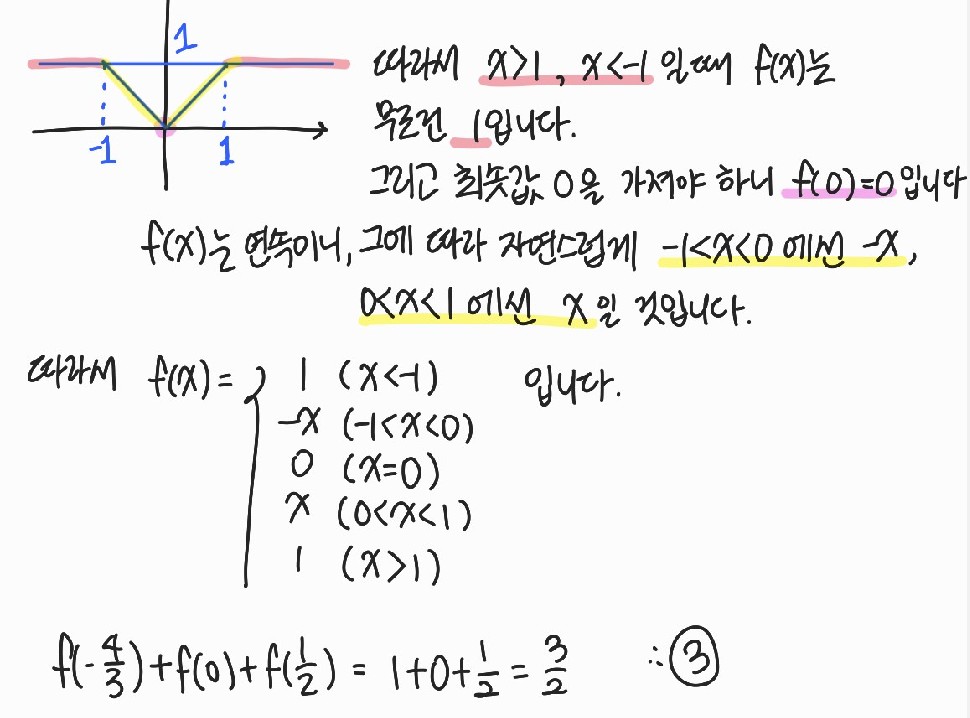 1
-1 1
따라서 x>1, x<-1 일때 f(x)는
무조건 1입니다.
그리고 최솟값 0을 가져야 하니 f(0)=0입니다
f(x)는 연속이니, 그에 따라 자연스럽게 -1<x<0 에선 -x,
0<x<1 에선 x일 것입니다.
따라서 f(x)= { 1 (x<-1) 입니다.
-x (-1<x<0)
0 (x=0)
x (0<x<1)
1 (x>1)
f(-4/3)+f(0)+f(1/2) = 1+0+1/2 = 3/2 ∴ ③